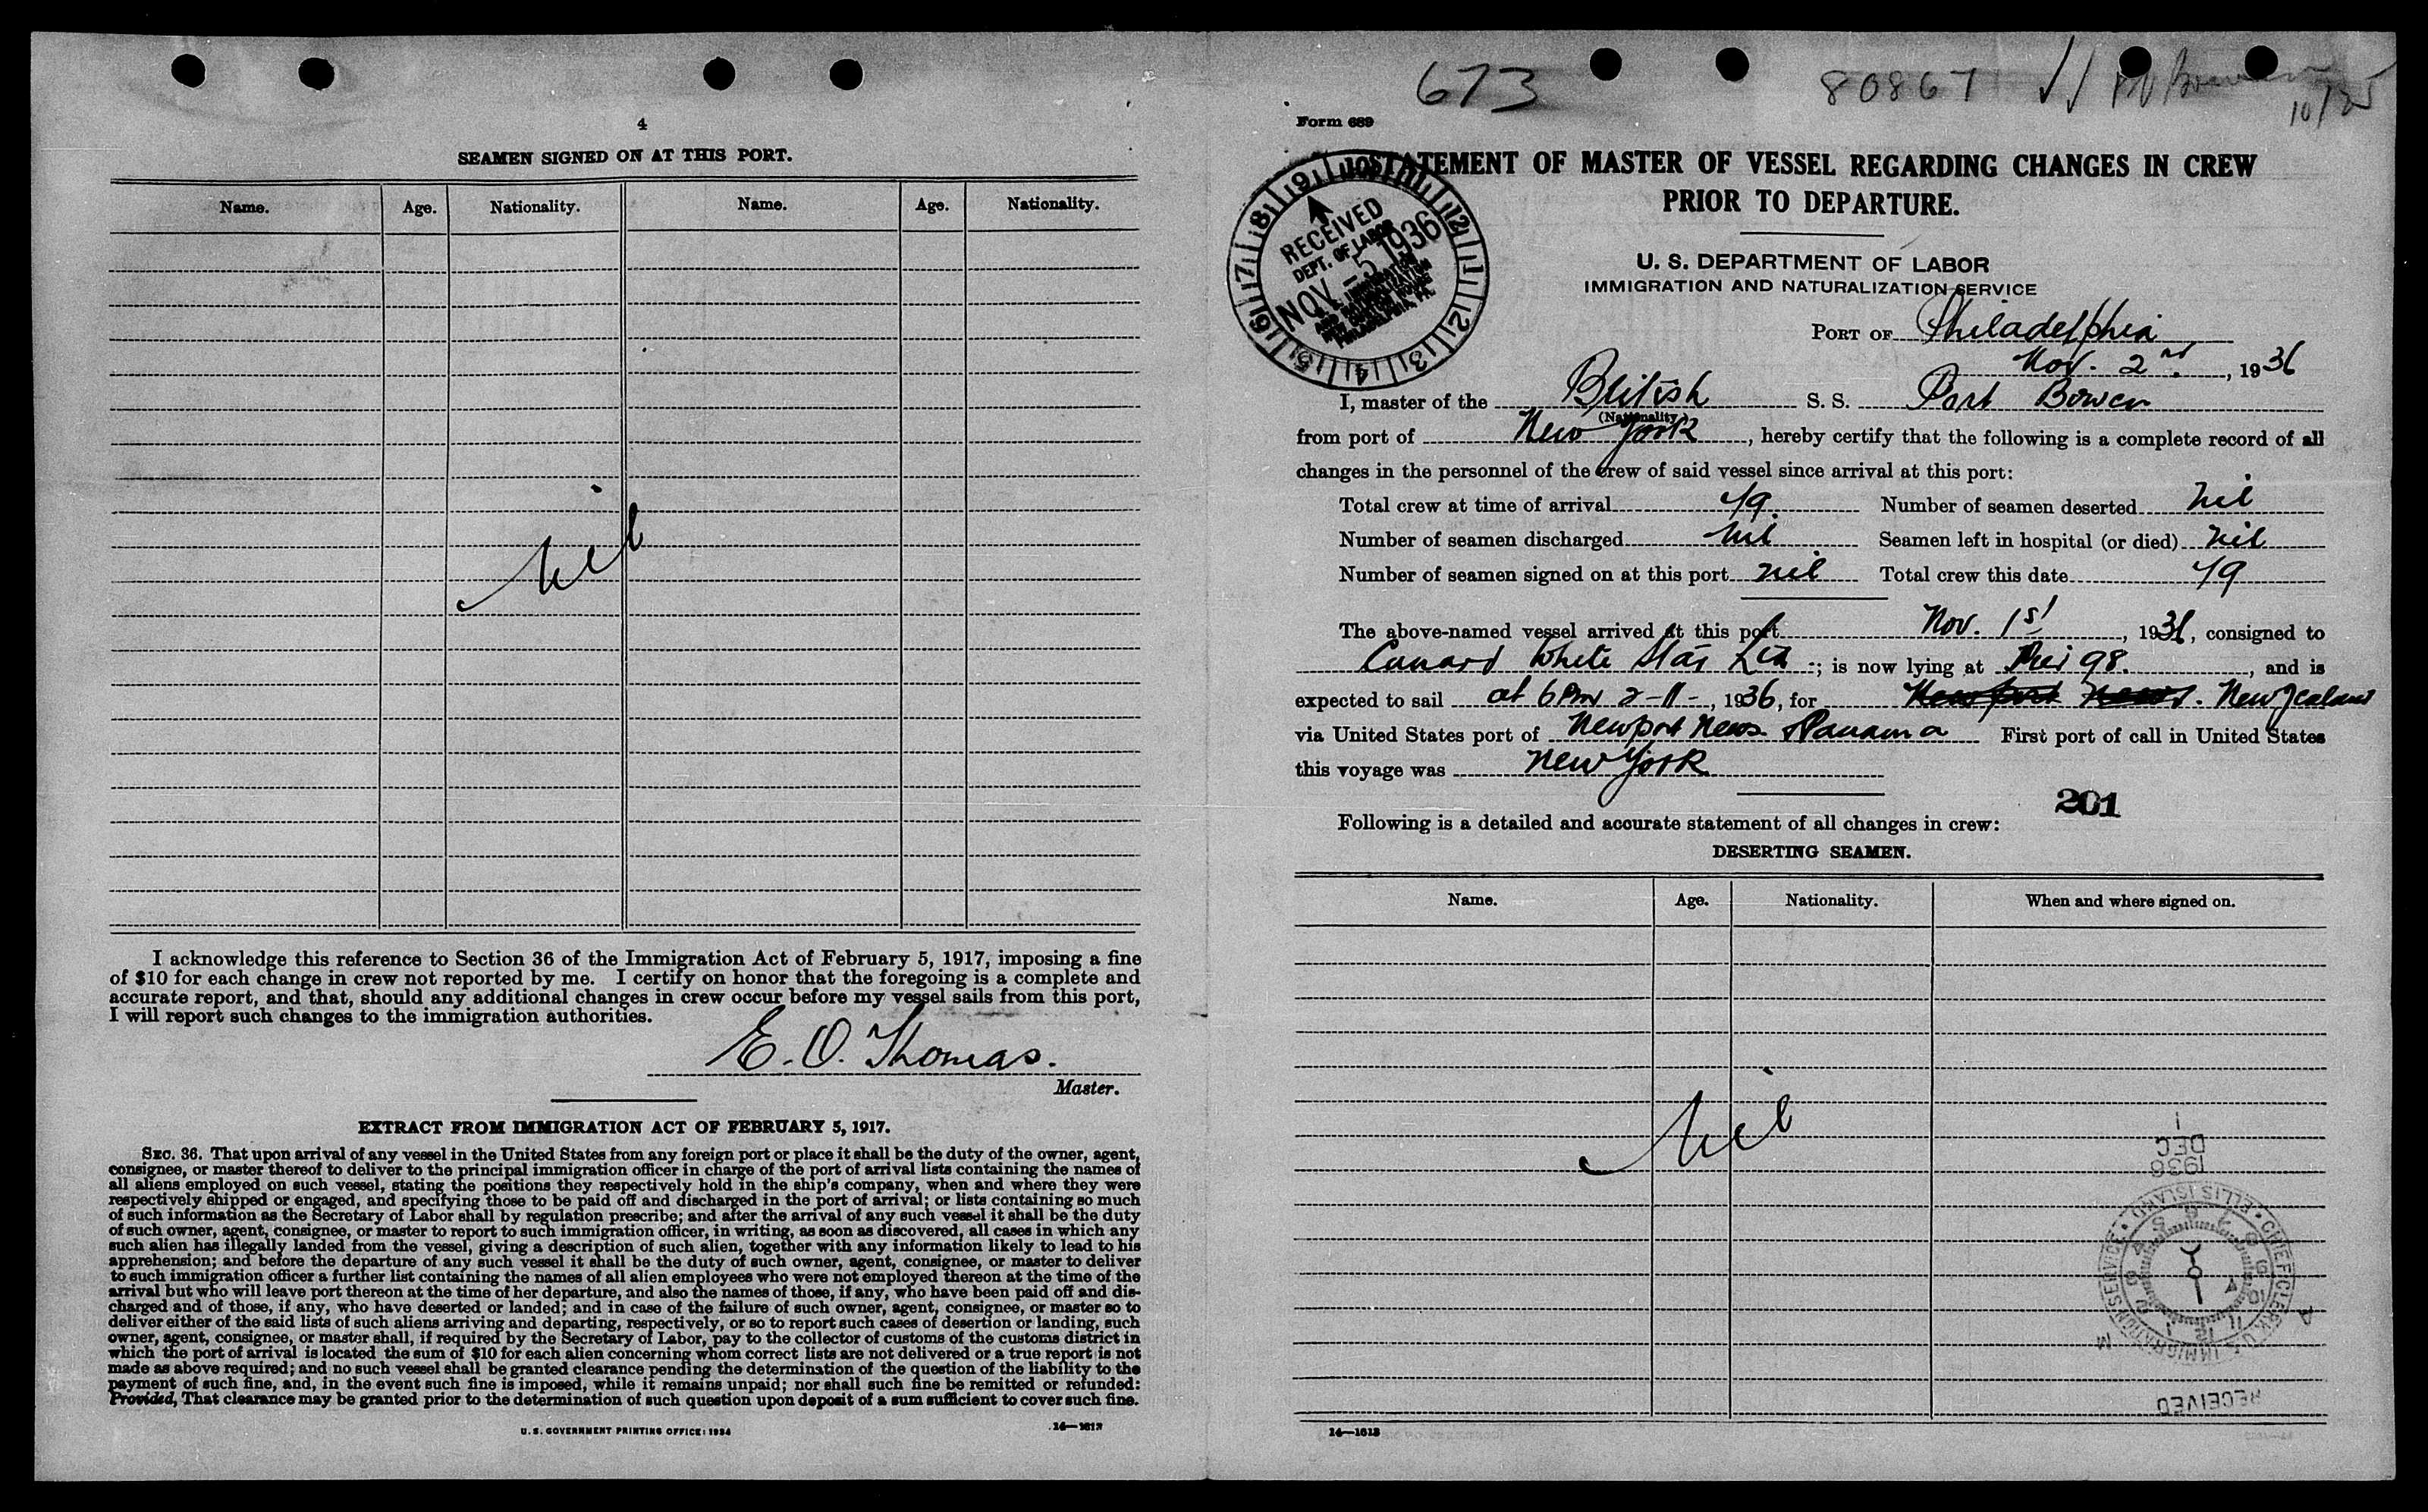 4
SEAMEN SIGNED ON AT THIS PORT.
Name. Age. Nationality. Name. Age. Nationality.
nil
I acknowledge this reference to Section 36 of the Immigration Act of February 5, 1917, imposing a fine
of $10 for each change in crew not reported by me. I certify on honor that the foregoing is a complete and
accurate report, and that, should any additional changes in crew occur before my vessel sails from this port,
I will report such changes to the immigration authorities.
E. O. Thomas.
Master.
EXTRACT FROM IMMIGRATION ACT OF FEBRUARY 5, 1917.
SEC. 36. That upon arrival of any vessel in the United States from any foreign port or place it shall be the duty of the owner, agent,
consignee, or master thereof to deliver to the principal immigration officer in charge of the port of arrival lists containing the names of
all aliens employed on such vessel, stating the positions they respectively hold in the ship's company, when and where they were
respectively shipped or engaged, and specifying those to be paid off and discharged in the port of arrival; or lists containing so much
of such information as the Secretary of Labor shall by regulation prescribe; and after the arrival of any such vessel it shall be the duty
of such owner, agent, consignee, or master to report to such immigration officer, in writing, as soon as discovered, all cases in which any
such alien has illegally landed from the vessel, giving a description of such alien, together with any information likely to lead to his
apprehension; and before the departure of any such vessel it shall be the duty of such owner, agent, consignee, or master to deliver
to such immigration officer a further list containing the names of all alien employees who were not employed thereon at the time of the
arrival but who will leave port thereon at the time of her departure, and also the names of those, if any, who have been paid off and dis-
charged and of those, if any, who have deserted or landed; and in case of the failure of such owner, agent, consignee, or master so to
deliver either of the said lists of such aliens arriving and departing, respectively, or so to report such cases of desertion or landing, such
owner, agent, consignee, or master shall, if required by the Secretary of Labor, pay to the collector of customs of the customs district in
which the port of arrival is located the sum of $10 for each alien concerning whom correct lists are not delivered or a true report is not
made as above required; and no such vessel shall be granted clearance pending the determination of the question of the liability to the
payment of such fine, and, in the event such fine is imposed, while it remains unpaid; nor shall such fine be remitted or refunded:
Provided, That clearance may be granted prior to the determination of such question upon deposit of a sum sufficient to cover such fine.
U. S. GOVERNMENT PRINTING OFFICE: 1934
14—1613
673 80867
10/25
Form 689
STATEMENT OF MASTER OF VESSEL REGARDING CHANGES IN CREW
PRIOR TO DEPARTURE.
RECEIVED
DEPT. OF LABOR
NOV -5 1936
PHILADELPHIA, PA.
U. S. DEPARTMENT OF LABOR
IMMIGRATION AND NATURALIZATION SERVICE
PORT OF Philadelphia
Nov. 2nd, 1936
I, master of the British S. S. Port Bowen
(Nationality)
from port of New York, hereby certify that the following is a complete record of all
changes in the personnel of the crew of said vessel since arrival at this port:
Total crew at time of arrival 79. Number of seamen deserted nil
Number of seamen discharged nil Seamen left in hospital (or died) nil
Number of seamen signed on at this port nil Total crew this date 79
The above-named vessel arrived at this port Nov. 1st, 1936, consigned to
Cunard White Star Ltd; is now lying at Pier 98., and is
expected to sail at 6 PM 2-11-, 1936, for Newport News. New Zealand
via United States port of Newport News Panama First port of call in United States
this voyage was New York
201
Following is a detailed and accurate statement of all changes in crew:
DESERTING SEAMEN.
Name. Age. Nationality. When and where signed on.
nil
1
DEC
1936
CHIEF CLERK U. S. IMMIGRATION SERVICE • ELLIS ISLAND •
RECEIVED
14—1613